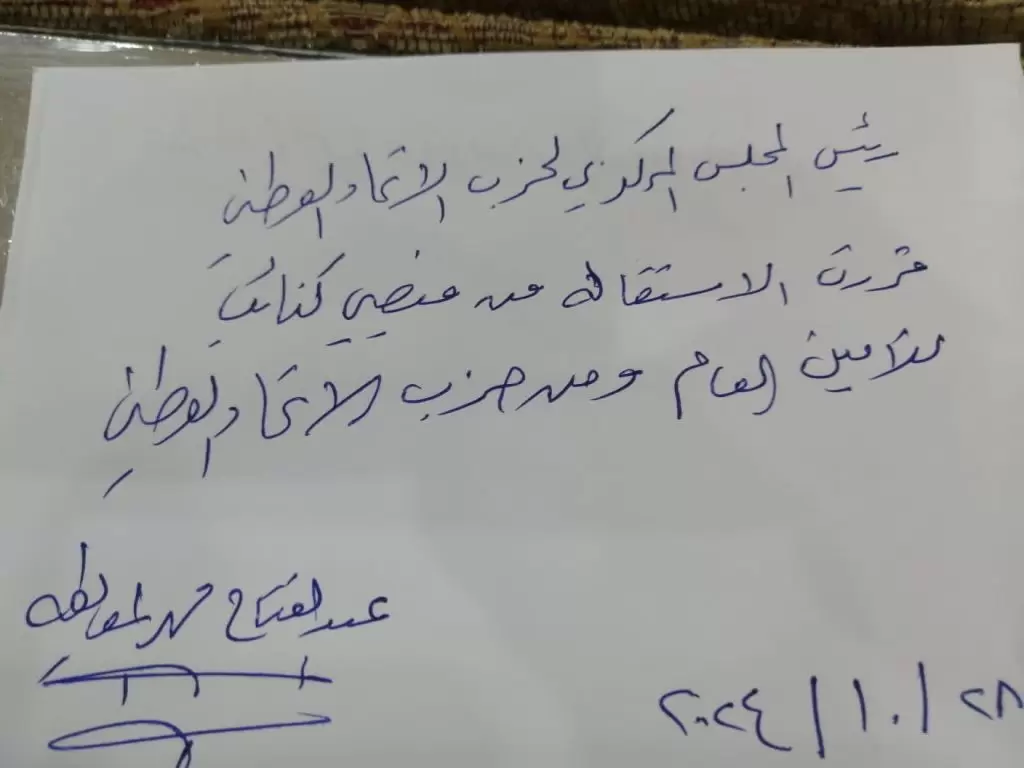 رئيس المجلس المركزي لحزب الاتحاد الوطني
قررت الاستقالة من منصبي كنائب
للأمين العام ومن حزب الاتحاد الوطني
عبد الفتاح محمد
٢٨ / ١٠ / ٢٠٢٤